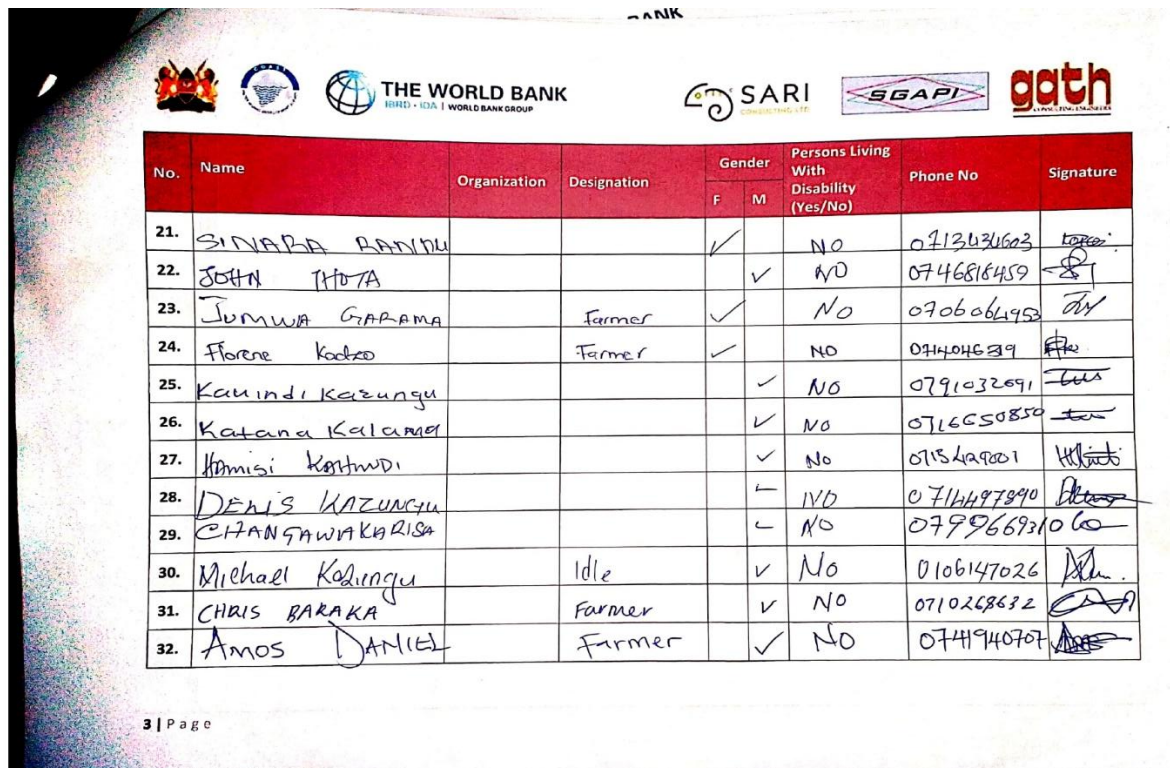 BANK
COAST
THE WORLD BANK
IBRD • IDA | WORLD BANK GROUP
SARI
CONSULTING LTD
SGAPI
gath
CONSULTING ENGINEERS
No. Name Organization Designation Gender F M Persons Living With Disability (Yes/No) Phone No Signature
21. SINARA RANDU ✓ NO 0713434603
22. JOHN THOTA ✓ NO 0746818459
23. JUMWA GARAMA Farmer ✓ NO 0706064953
24. Florene Kadzo Farmer ✓ NO
25. Kauindi Kazungu ✓ NO 0791032691
26. Katana Kalama ✓ NO 0716650850
27. Hamisi ✓ No
28. DENIS KAZUNGU ✓ NO 0714497890
29. CHANGAWAKARISA ✓ NO 0799669310
30. Michael Kazungu Idle ✓ No 0106147026
31. CHRIS BARAKA Farmer ✓ NO 0710268632
32. AMOS DANIEL Farmer ✓ NO 0741940707
3 | Page